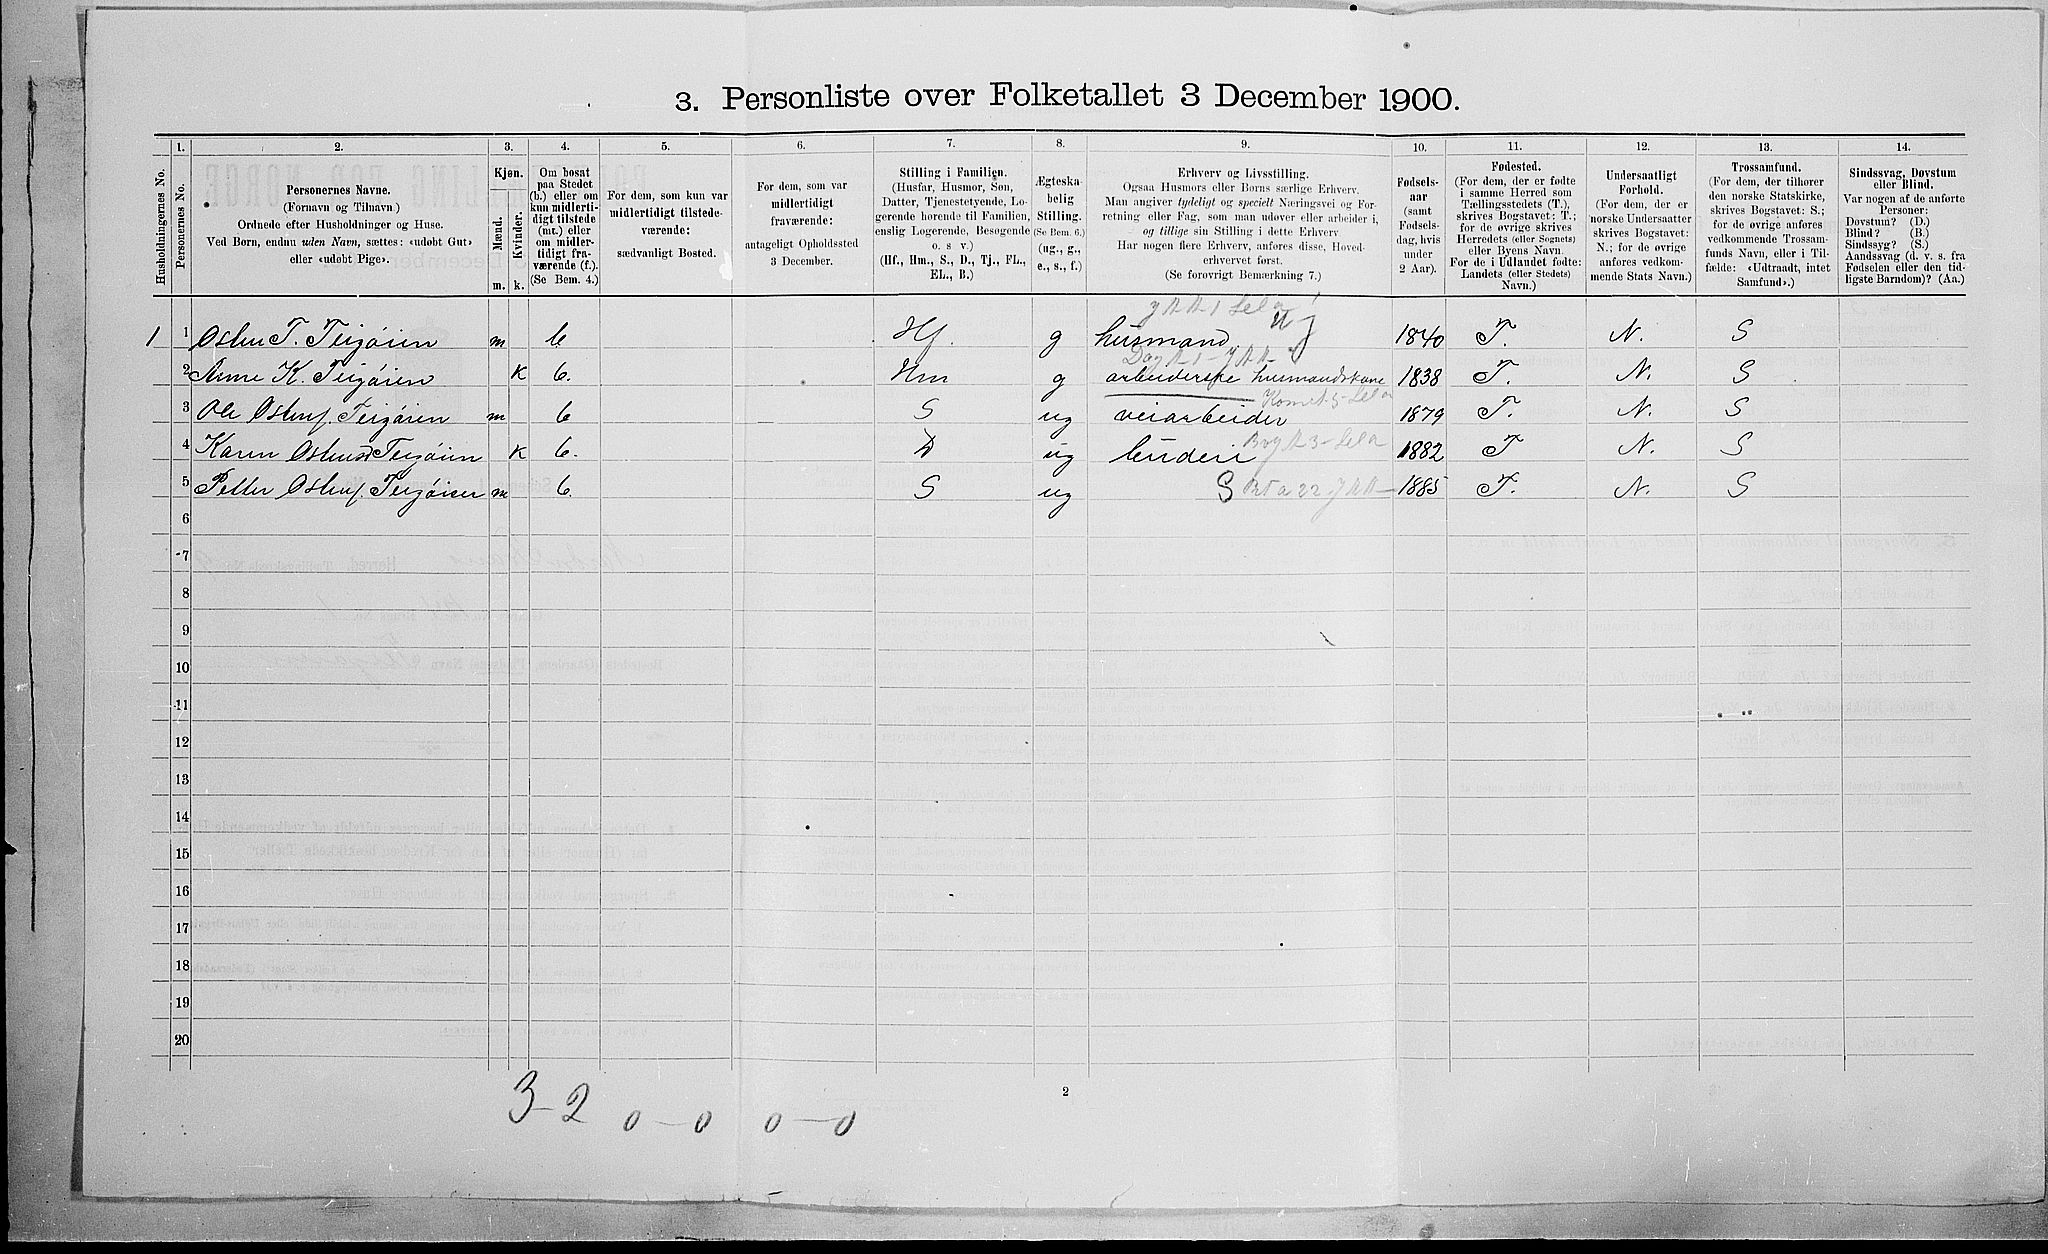 3. Personliste over Folketallet 3 December 1900.
1. 2. 3. 4. 5. 6. 7. 8. 9. 10. 11. 12. 13. 14.
Husholdningernes No.
Personernes No.
Personernes Navne.
(Fornavn og Tilnavn)
Ordnede efter Husholdninger og Huse.
Ved Børn, endnu uden Navn, sættes: «udøbt Gut»
eller «udøbt Pige».
Kjøn.
Mænd.
Kvinder.
m. k.
Om bosat
paa Stedet
(b.) eller om
kun midlerti-
digt tilstede
(mt.) eller
om midler-
tidigt fra-
værende (f.).
(Se Bem. 4.)
For dem, som kun var
midlertidigt tilstede-
værende:
sædvanligt Bosted.
For dem, som var
midlertidigt
fraværende:
antageligt Opholdssted
3 December.
Stilling i Familien.
(Husfar, Husmor, Søn,
Datter, Tjenestetyende, Lo-
gerende hørende til Familien,
enslig Logerende, Besøgende
o. s v.)
(Hf., Hm., S., D., Tj., FL.,
EL., B.)
Ægteska-
belig
Stilling.
(Se Bem. 6.)
(ug., g.,
e., s., f.)
Erhverv og Livsstilling.
Ogsaa Husmors eller Børns særlige Erhverv.
Man angiver tydeligt og specielt Næringsvei og For-
retning eller Fag, som man udøver eller arbeider i,
og tillige sin Stilling i dette Erhverv.
Har nogen flere Erhverv, anføres disse, Hoved-
erhvervet først.
(Se forøvrigt Bemærkning 7.)
Fødsels-
aar
(samt
Fødsels-
dag, hvis
under
2 Aar).
Fødested.
(For dem, der er fødte
i samme Herred som
Tællingsstedets (T.),
skrives Bogstavet: T.;
for de øvrige skrives
Herredets (eller Sognets)
eller Byens Navn.
For de i Udlandet fødte:
Landets (eller Stedets)
Navn.)
Undersaatligt
Forhold.
(For dem, der er
norske Undersaatter
skrives Bogstavet:
N.; for de øvrige
anføres vedkom-
mende Stats Navn.)
Trossamfund.
(For dem, der tilhører
den norske Statskirke,
skrives Bogstavet: S.;
for de øvrige anføres
vedkommende Trossam-
funds Navn, eller i Til-
fælde: «Udtraadt, intet
Samfund».)
Sindssvag, Døvstum
eller Blind.
Var nogen af de anførte
Personer:
Døvstum? (D.)
Blind? (B.)
Sindssyg? (S.)
Aandssvag (d. v. s. fra
Fødselen eller den tid-
ligste Barndom)? (Aa.)
1 1 Osten T. Teigøien m b Hf. g husmand 1840 T. N. S
2 Anne K. Teigøien k b. Hm g arbeiderske husmandskone 1838 T. N. S
3 Ole Ostens. Teigøien m b S ug veiarbeider 1879 T. N. S
4 Karen Ostensd Teigøien k b. D ug budeie 1882 T N. S
5 Petter Ostens. Teigøien m b. S ug S 1885 T. N. S
6
7
8
9
10
11
12
13
14
15
16
17
18
19
20
2
3-2 0-0 0-0